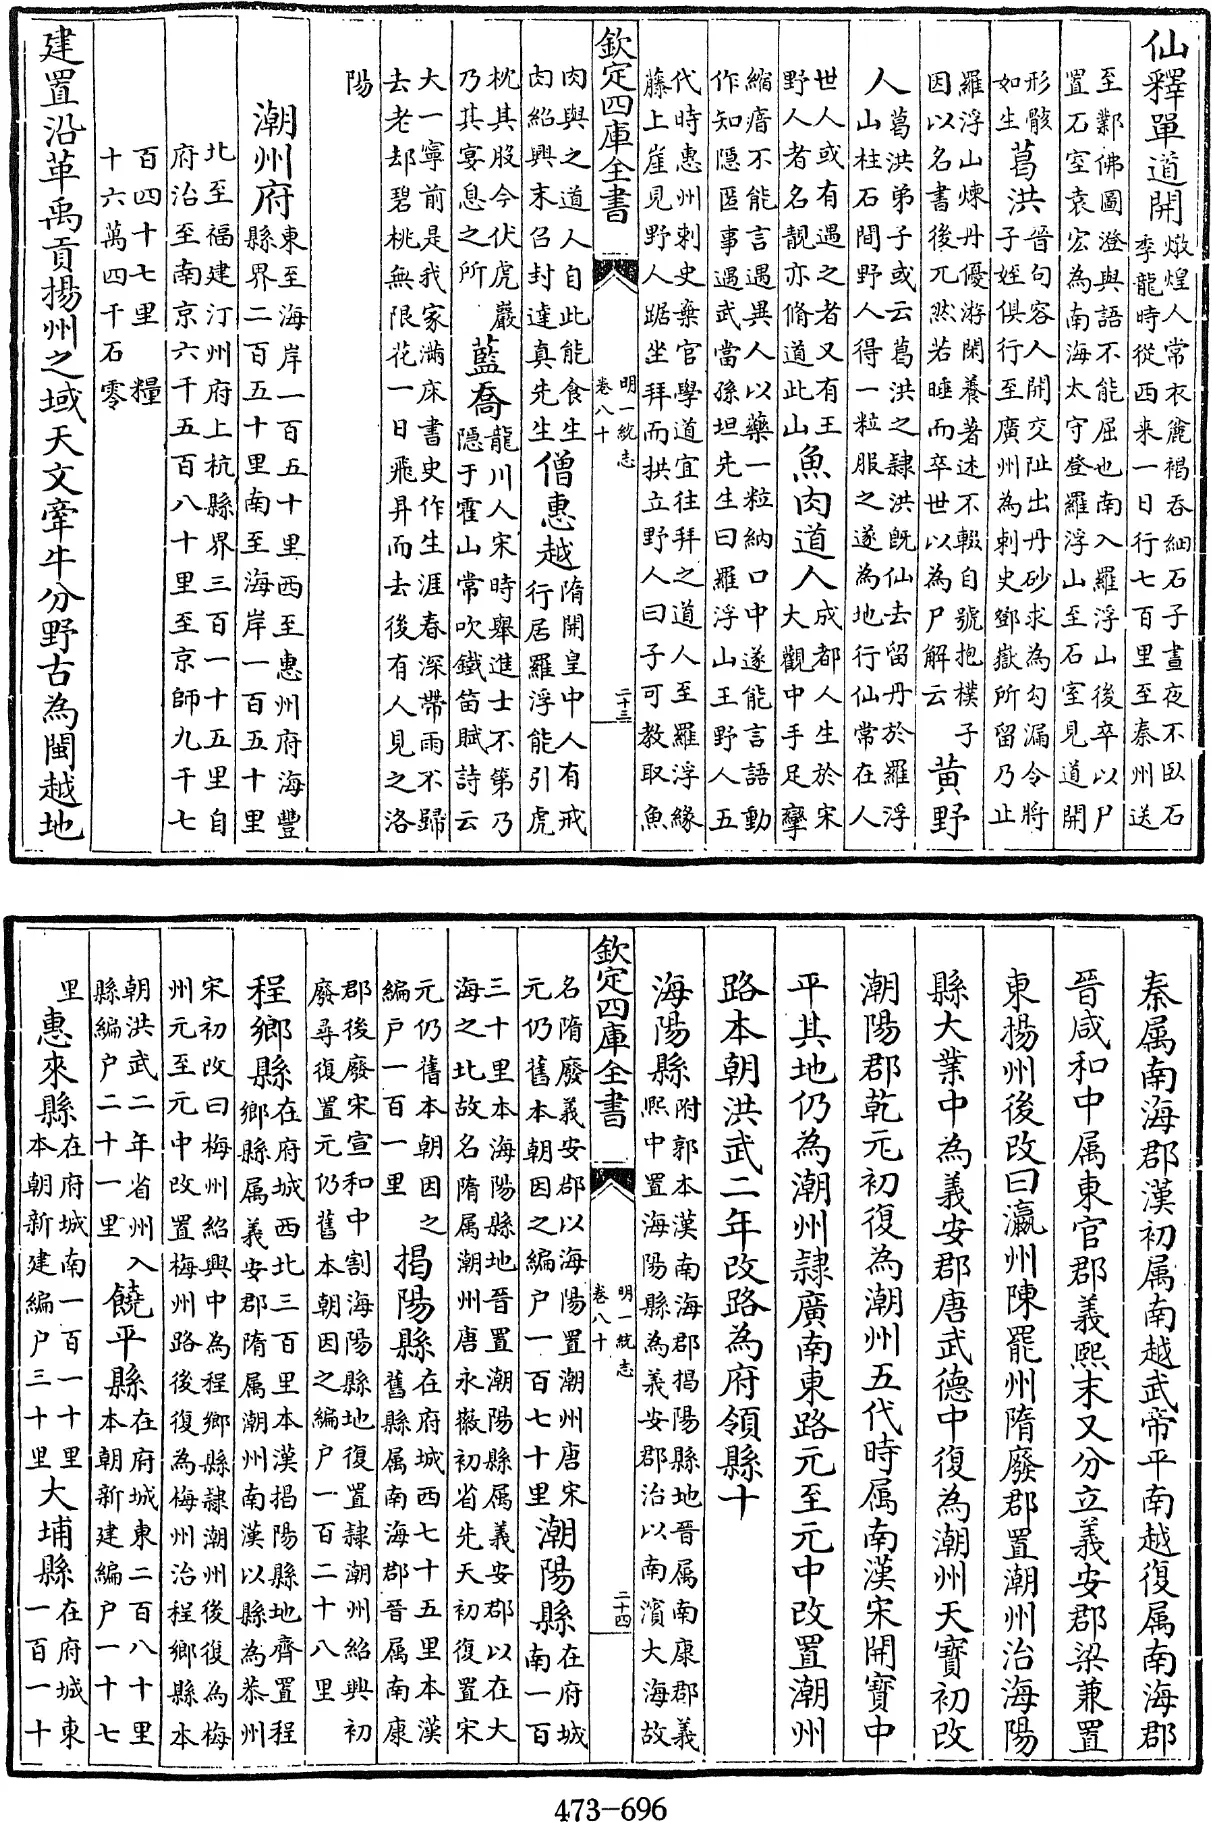 仙釋單道開燉煌人常衣麄褐吞細石子晝夜不臥石
季龍時從西来一日行七百里至秦州送
至鄴佛圖澄與語不能屈也南入羅浮山後卒以尸
置石室袁宏為南海太守登羅浮山至石室見道開
形骸
如生
葛洪晉句容人開交阯出丹砂求為勾漏令將
子姪俱行至廣州為刺史鄧嶽所留乃止
羅浮山煉丹優游閑養著述不輟自號抱樸子
因以名書後兀然若睡而卒世以為尸解云
黄野
人葛洪弟子或云葛洪之隷洪既仙去留丹於羅浮
山柱石間野人得一粒服之遂為地行仙常在人
世人或有遇之者又有王
野人者名靚亦脩道此山
魚肉道人成都人生於宋
大觀中手足攣
縮瘖不能言遇異人以藥一粒納口中遂能言語動
作知隱匿事遇武當孫坦先生曰羅浮山王野人五
代時惠州刺史棄官學道宜往拜之道人至羅浮緣
藤上崖見野人踞坐拜而拱立野人曰子可教取魚
欽定四庫全書
明一統志
卷八十
二十三
肉與之道人自此能食生
肉紹興末召封達真先生
僧惠越隋開皇中人有戒
行居羅浮能引虎
枕其股今伏虎巖
乃其宴息之所
藍喬龍川人宋時舉進士不第乃
隱于霍山常吹鐵笛賦詩云
大一寧前是我家滿床書史作生涯春深帶雨不歸
去老却碧桃無限花一日飛昇而去後有人見之洛
陽
潮州府東至海岸一百五十里西至惠州府海豐
縣界二百五十里南至海岸一百五十里
北至福建汀州府上杭縣界三百一十五里自
府治至南京六千五百八十里至京師九千七
百四十七里糧
十六萬四千石零
建置沿革禹貢揚州之域天文牽牛分野古為閩越地
秦属南海郡漢初属南越武帝平南越復属南海郡
晉咸和中属東官郡義熙末又分立義安郡梁兼置
東揚州後改曰瀛州陳罷州隋廢郡置潮州治海陽
縣大業中為義安郡唐武德中復為潮州天寶初改
潮陽郡乾元初復為潮州五代時属南漢宋開寶中
平其地仍為潮州隷廣南東路元至元中改置潮州
路本朝洪武二年改路為府領縣十
海陽縣附郭本漢南海郡揭陽縣地晉属南康郡義
熙中置海陽縣為義安郡治以南濱大海故
欽定四庫全書
明一統志
卷八十
二十四
名隋廢義安郡以海陽置潮州唐宋
元仍舊本朝因之編户一百七十里
潮陽縣在府城
南一百
三十里本海陽縣地晉置潮陽縣属義安郡以在大
海之北故名隋属潮州唐永徽初省先天初復置宋
元仍舊本朝因之
編户一百一里
揭陽縣在府城西七十五里本漢
舊縣属南海郡晉属南康
郡後廢宋宣和中割海陽縣地復置隷潮州紹興初
廢尋復置元仍舊本朝因之編户一百二十八里
程鄉縣在府城西北三百里本漢揭陽縣地齊置程
鄉縣属義安郡隋属潮州南漢以縣為恭州
宋初改曰梅州紹興中為程鄉縣隷潮州後復為梅
州元至元中改置梅州路後復為梅州治程鄉縣本
朝洪武二年省州入
縣編户二十一里
饒平縣在府城東二百八十里
本朝新建編户一十七
里
惠來縣在府城南一百一十里
本朝新建編户三十里
大埔縣在府城東
一百一十
473-696